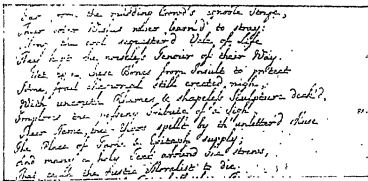 Far from the madding Crowd's ignoble Strife,
Their sober Wishes never learn'd to stray:
Along the cool sequester'd Vale of Life
They kept the noiseless Tenour of their Way.
Yet even these Bones from Insult to protect
Some frail Memorial still erected nigh,
With uncouth Rhimes & shapeless Sculpture deck'd,
Implores the passing Tribute of a Sigh.
Their Name, their Years spelt by th' unletter'd Muse
The Place of Fame & Epitaph supply;
And many a holy Text around she strews,
That teach the rustic Moralist to die.